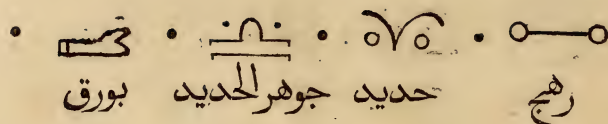 رهج حديد جوهر الحديد بورق